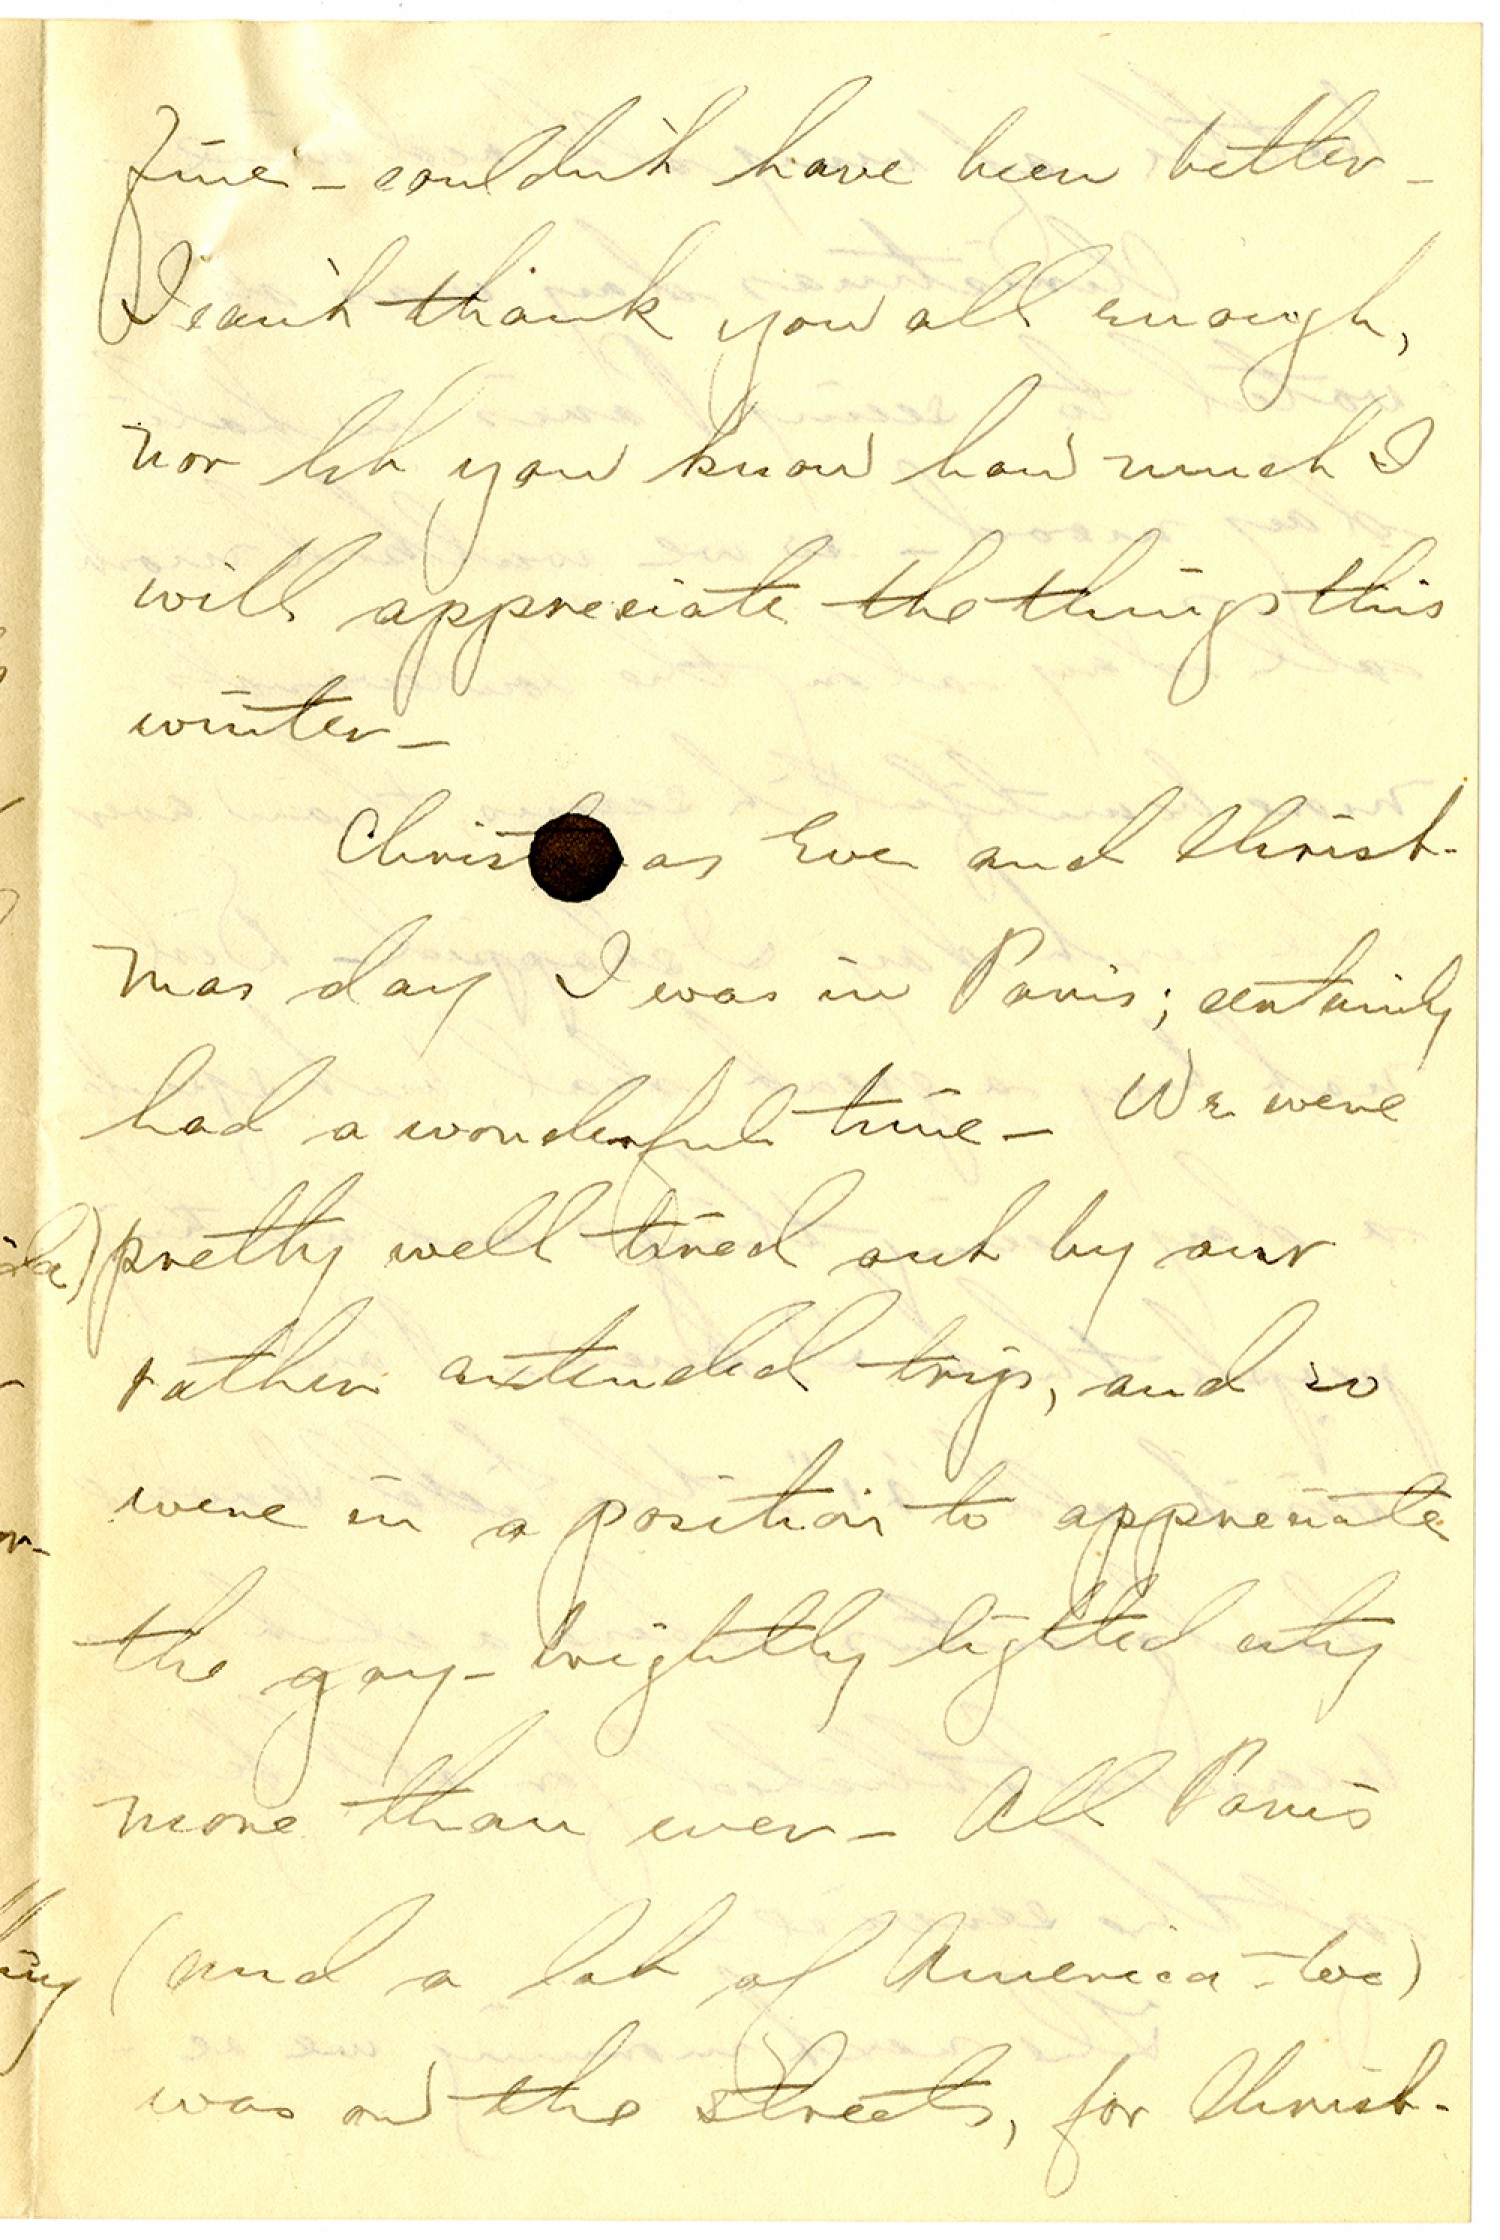 fine – couldn't have been better –
I can't thank you all enough,
nor let you know how much I
will appreciate the things this
winter –
Christ as Eve and Christ-
mas day I was in Paris; certainly
had a wonderful time – We were
pretty well tired out by our
rather extended trip, and so
were in a position to appreciate
the gay – brightly lighted city
more than ever – All Paris
(and a lot of America – too)
was on the streets, for Christ-